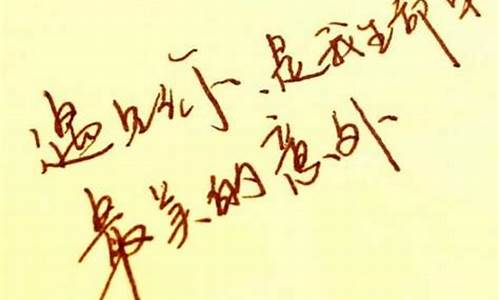 遇见你、是我生命
最美的意外